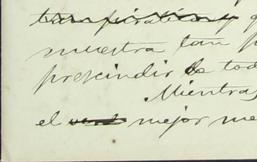 y q
muestra tan p
prescindir de tod
Mientras
el mejor me